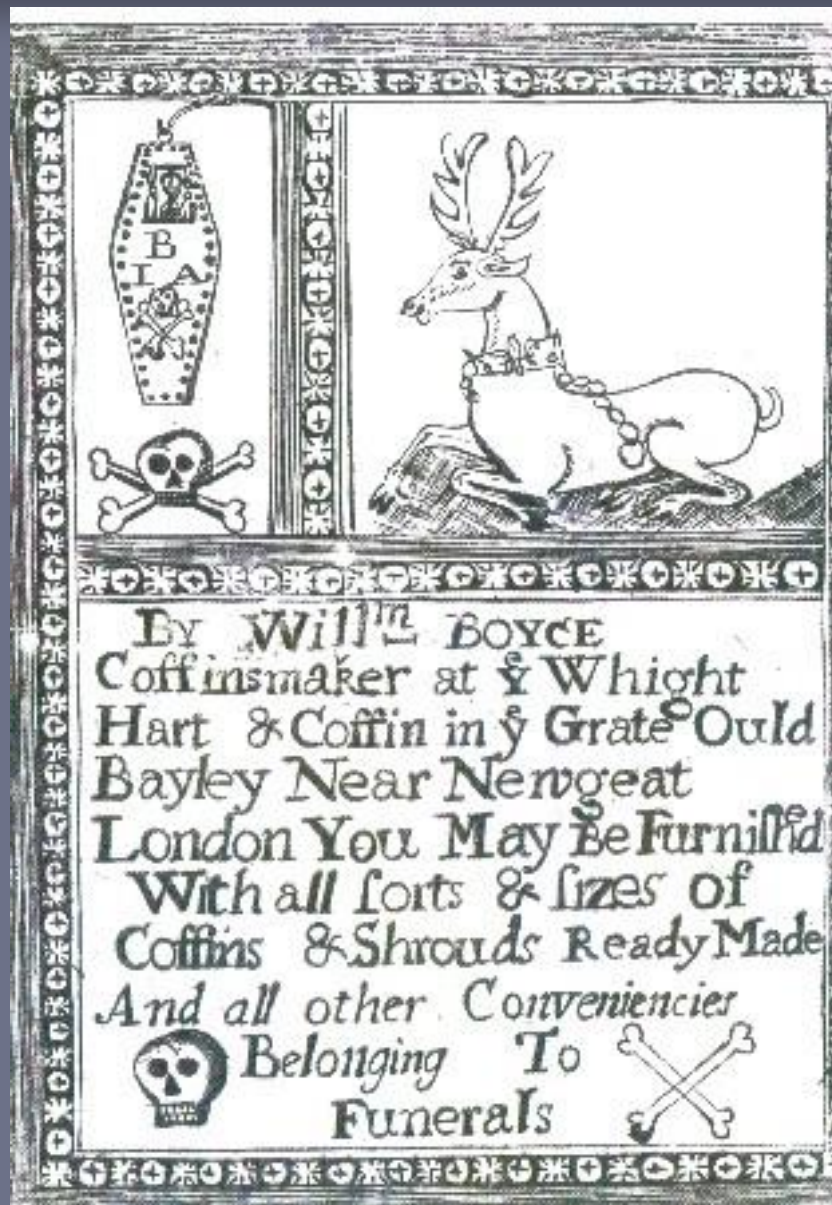 B
I A
By Will^m BOYCE
Coffinsmaker at yͤ Whight
Hart & Coffin in yͤ Grate Ould
Bayley Near Newgeat
London You May Be Furniſhed
With all ſorts & ſizes of
Coffins & Shrouds Ready Made
And all other Conveniencies
Belonging To
Funerals